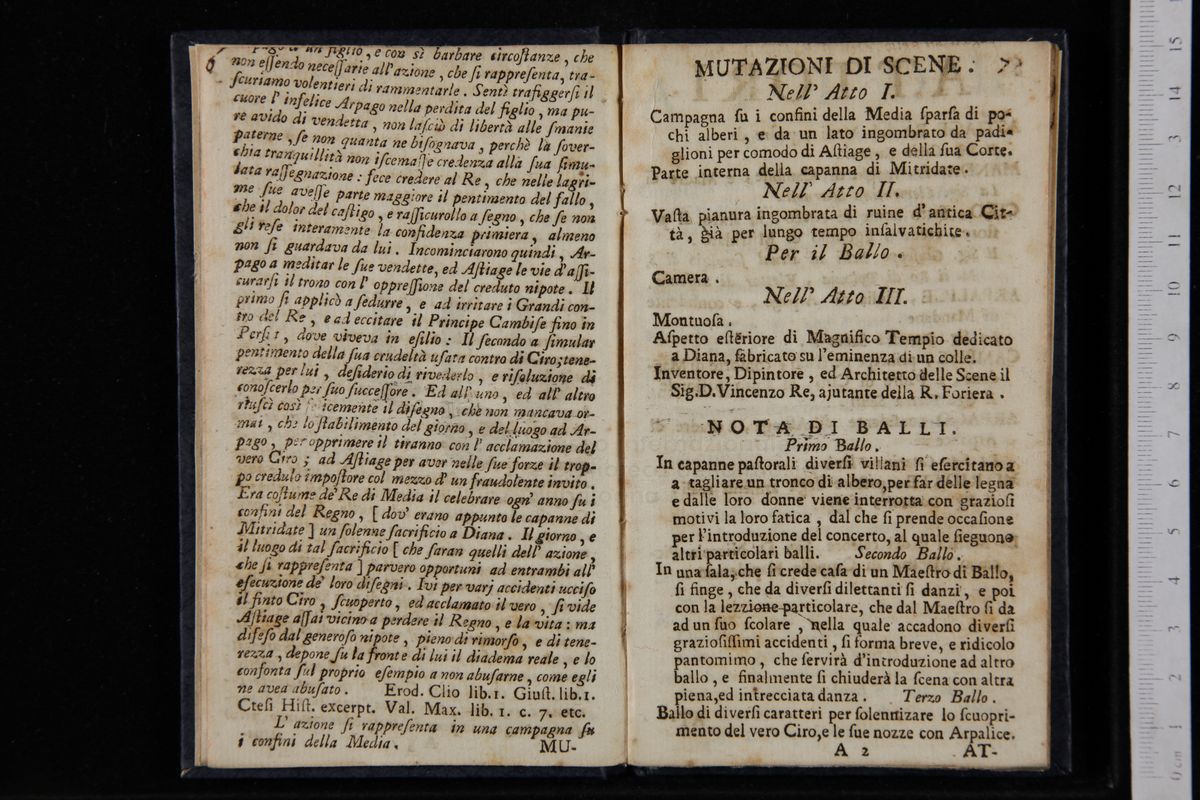 6
un figlio, e con sì barbare circoſtanze, che
non eſſendo neceſſarie all'azione, che ſi rappreſenta, tra-
ſcuriamo volentieri di rammentarle. Sentì trafiggerſi il
cuore l' infelice Arpago nella perdita del figlio, ma pu-
re avido di vendetta, non laſciò di libertà alle ſmanie
paterne, ſe non quanta ne biſognava, perchè la ſover-
chia tranquillità non iſcemaſſe credenza alla ſua ſimu-
lata raſſegnazione: fece credere al Re, che nelle lagri-
me ſue aveſſe parte maggiore il pentimento del fallo,
che il dolor del caſtigo, e raſſicurollo a ſegno, che ſe non
gli reſe interamente la confidenza primiera, almeno
non ſi guardava da lui. Incominciarono quindi, Ar-
pago a meditar le ſue vendette, ed Aſtiage le vie d'aſſi-
curarſi il trono con l' oppreſſione del creduto nipote. Il
primo ſi applicò a ſedurre, e ad irritare i Grandi con-
tro del Re, e ad eccitare il Principe Cambiſe fino in
Perſia, dove viveva in eſilio: Il ſecondo a ſimular
pentimento della ſua crudeltà uſata contro di Ciro; tene-
rezza per lui, deſiderio di rivederlo, e riſoluzione di
conoſcerlo per ſuo ſucceſſore. Ed all' uno, ed all' altro
riuſcì così felicemente il diſegno, che non mancava or-
mai, che lo ſtabilimento del giorno, e del luogo ad Ar-
pago, per opprimere il tiranno con l' acclamazione del
vero Ciro; ad Aſtiage per aver nelle ſue forze il trop-
po credulo impoſtore col mezzo d' un fraudolente invito.
Era coſtume de' Re di Media il celebrare ogn' anno ſu i
confini del Regno, [ dov' erano appunto le capanne di
Mitridate ] un ſolenne ſacrificio a Diana. Il giorno, e
il luogo di tal ſacrificio [ che ſaran quelli dell' azione,
che ſi rappreſenta ] parvero opportuni ad entrambi all'
eſecuzione de' loro diſegni. Ivi per varj accidenti ucciſo
il finto Ciro, ſcuoperto, ed acclamato il vero, ſi vide
Aſtiage aſſai vicino a perdere il Regno, e la vita: ma
difeſo dal generoſo nipote, pieno di rimorſo, e di tene-
rezza, depone ſu la fronte di lui il diadema reale, e lo
conforta ſul proprio eſempio a non abuſarne, come egli
ne avea abuſato. Erod. Clio lib. 1. Giuſt. lib. 1.
Cteſi Hiſt. excerpt. Val. Max. lib. 1. c. 7. etc.
L' azione ſi rappreſenta in una campagna ſu
i confini della Media.
MU-
MUTAZIONI DI SCENE. 7
Nell' Atto I.
Campagna ſu i confini della Media ſparſa di po-
chi alberi, e da un lato ingombrato da padi-
glioni per comodo di Aſtiage, e della ſua Corte.
Parte interna della capanna di Mitridate.
Nell' Atto II.
Vaſta pianura ingombrata di ruine d' antica Cit-
tà, già per lungo tempo inſalvatichite.
Per il Ballo.
Camera.
Nell' Atto III.
Montuoſa.
Aſpetto eſteriore di Magnifico Tempio dedicato
a Diana, fabricato su l'eminenza di un colle.
Inventore, Dipintore, ed Architetto delle Scene il
Sig. D. Vincenzo Re, ajutante della R. Foriera.
NOTA DI BALLI.
Primo Ballo.
In capanne paſtorali diverſi villani ſi eſercitano a
a tagliare un tronco di albero, per far delle legna
e dalle loro donne viene interrotta con grazioſi
motivi la loro fatica, dal che ſi prende occaſione
per l'introduzione del concerto, al quale ſieguono
altri particolari balli. Secondo Ballo.
In una ſala, che ſi crede caſa di un Maeſtro di Ballo,
ſi finge, che da diverſi dilettanti ſi danzi, e poi
con la lezzione particolare, che dal Maeſtro ſi da
ad un ſuo ſcolare, nella quale accadono diverſi
grazioſiſſimi accidenti, ſi forma breve, e ridicolo
pantomimo, che ſervirà d'introduzione ad altro
ballo, e finalmente ſi chiuderà la ſcena con altra
piena, ed intrecciata danza. Terzo Ballo.
Ballo di diverſi caratteri per ſolennizare lo ſcuopri-
mento del vero Ciro, e le ſue nozze con Arpalice.
A 2 AT-
0 cm 1 2 3 4 5 6 7 8 9 10 11 12 13 14 15